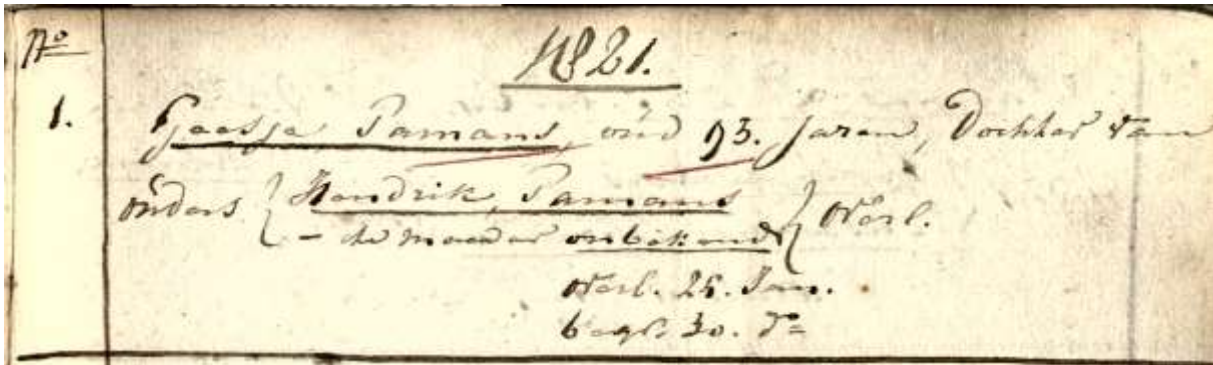 No
1821.
1.
Geesje Pamans, oúd 93. Jaren, Dochter van
oúders { Hendrik Pamans } overl.
– de moeder onbekend
overl. 25. Jan.
begr. 30. do